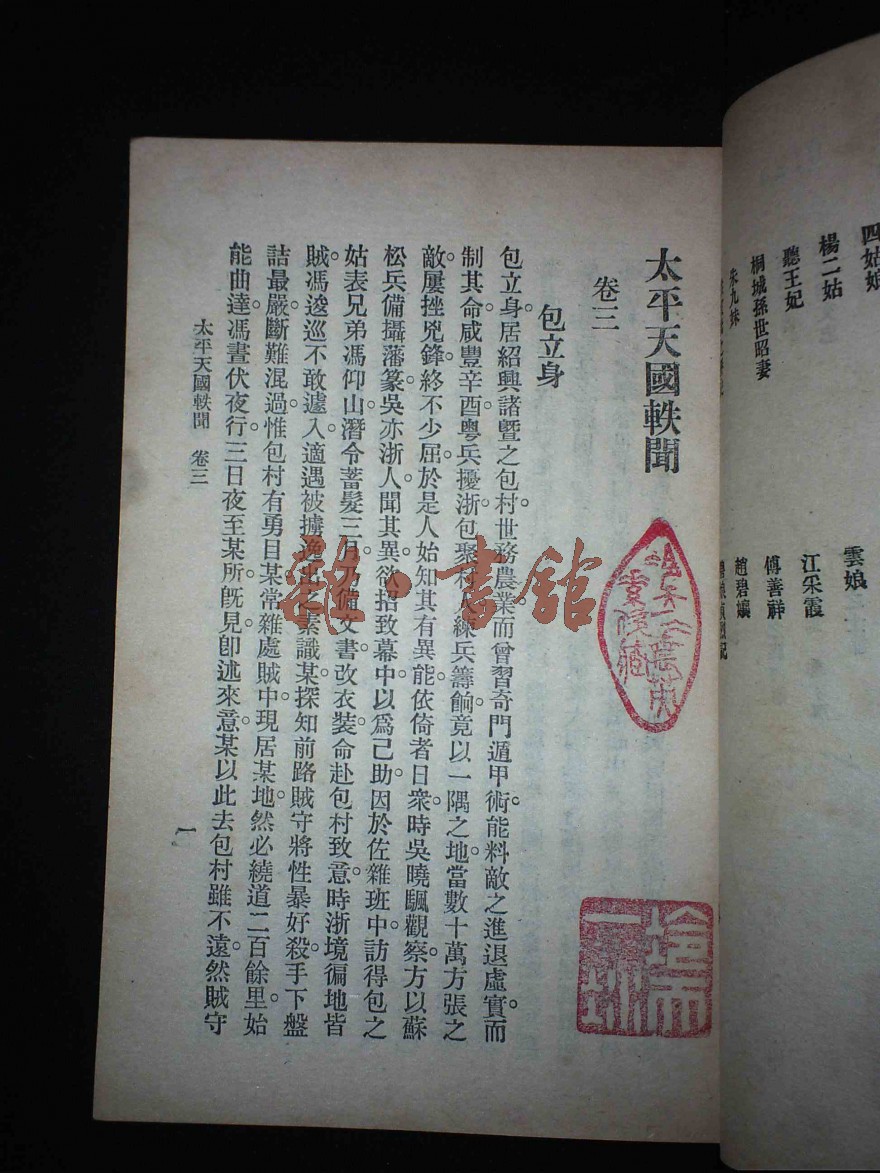 四姑娘
楊二姑
聽王妃
桐城孫世昭妻
朱九妹
雲娘
江采霞
傅善祥
趙碧孃
太平天國軼聞
卷三
包立身
包立身。居紹興諸暨之包村。世務農業。而曾習奇門遁甲術。能料敵之進退虛實。而
制其命。咸豐辛酉。粵兵擾浙。包聚村人練兵籌餉。竟以一隅之地。當數十萬方張之
敵。屢挫兇鋒。終不少屈。於是人始知其有異能。依倚者日衆。時吳曉颿觀察。方以蘇
松兵備攝藩篆。吳亦浙人。聞其異。欲招致幕中。以爲己助。因於佐雜班中。訪得包之
姑表兄弟馮仰山。潛令蓄髮三月。乃備文書。改衣裝。命赴包村致意。時浙境徧地皆
賊。馮逡巡不敢遽入。適遇被擄逸出之素識某。探知前路賊守將性暴好殺。手下盤
詰最嚴。斷難混過。惟包村有勇目某。常雜處賊中。現居某地。然必繞道二百餘里。始
能曲達。馮晝伏夜行。三日夜至某所。旣見。卽述來意。某以此去包村雖不遠。然賊守
太平天國軼聞 卷三
一
雜·書館